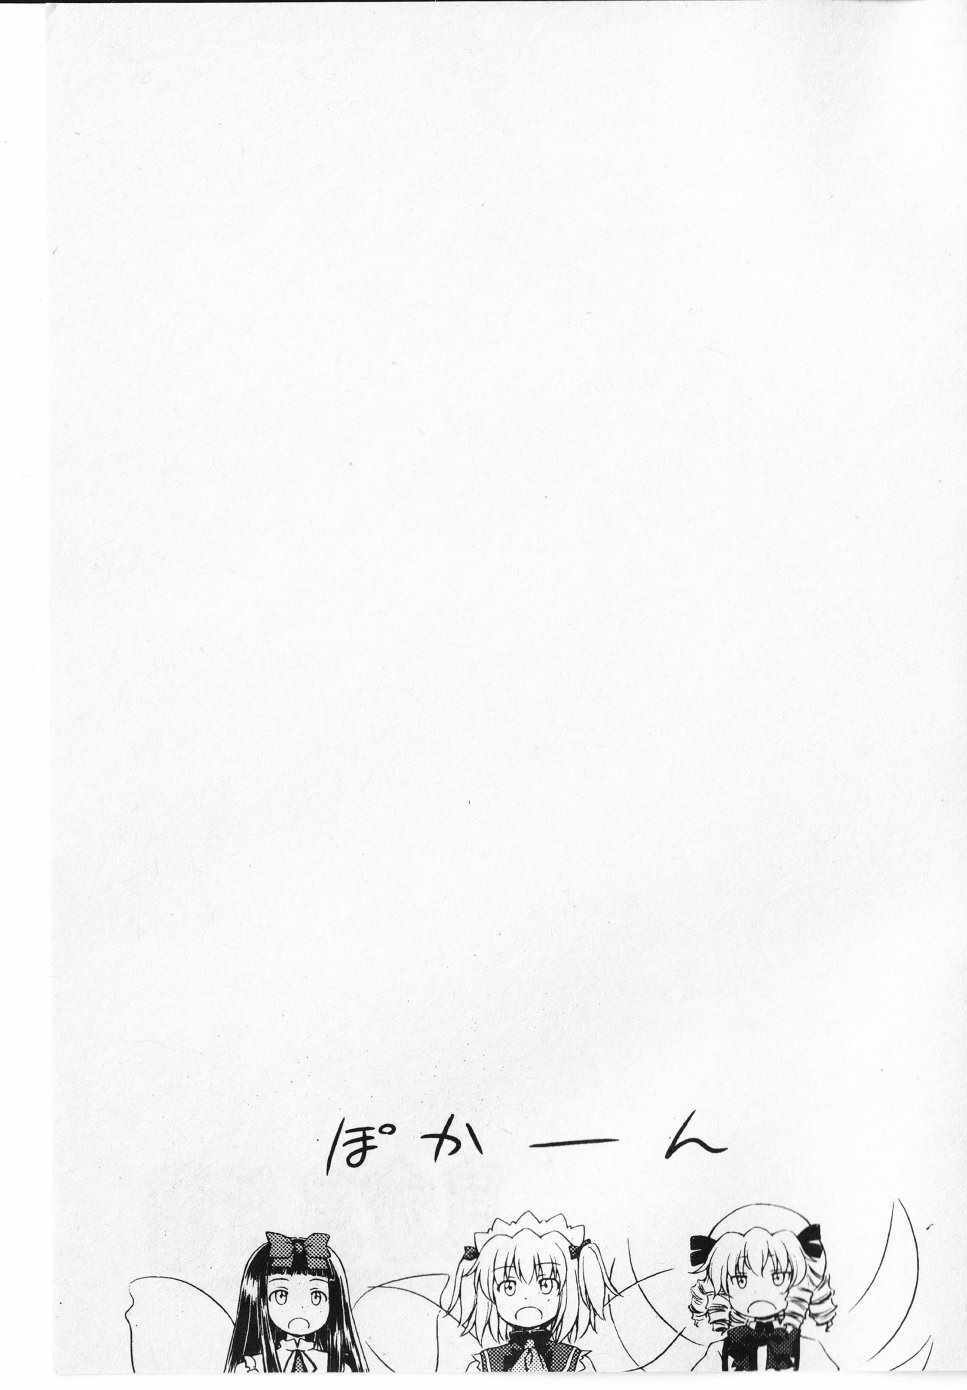 ぽかーん